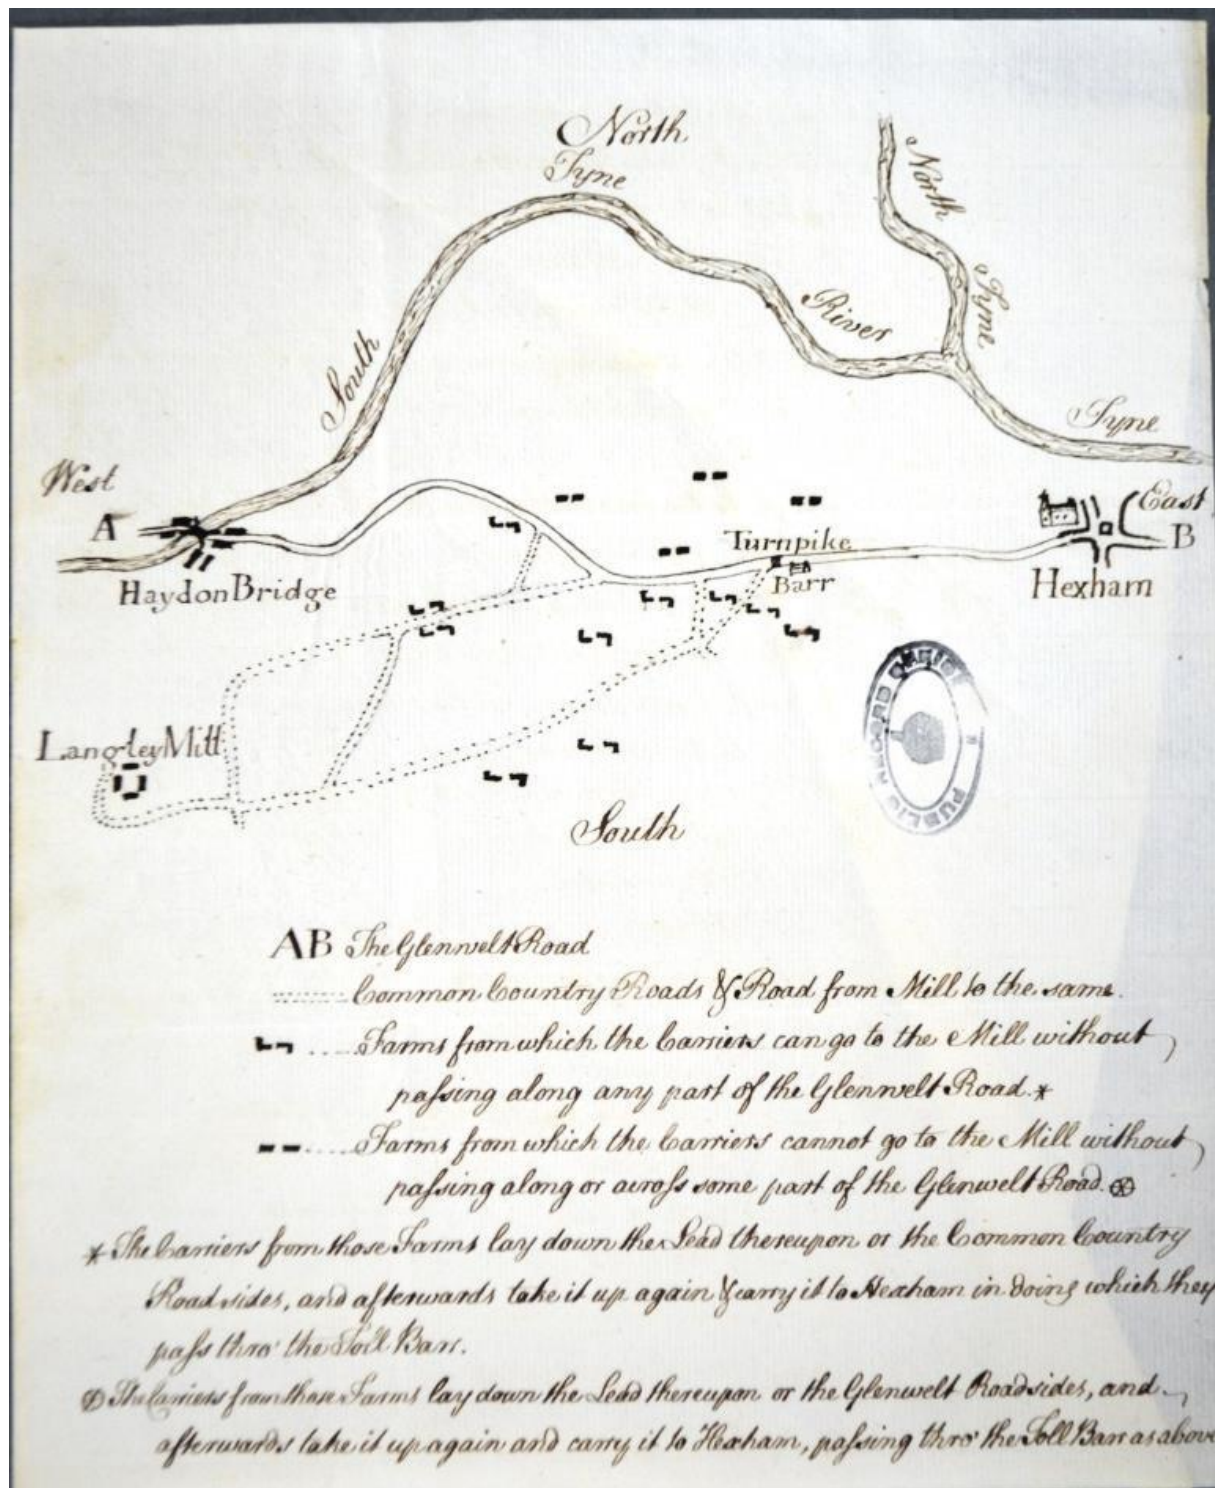 North
Tyne
North
Tyne
River
South
Tyne
West
East
A
B
Turnpike
Barr
Haydon Bridge
Hexham
Langley Mill
PUBLIC RECORD OFFICE
South
AB The Glenwelt Road
Common Country Roads & Road from Mill to the same.
Farms from which the Carriers can go to the Mill without
paſsing along any part of the Glenwelt Road.*
Farms from which the Carriers cannot go to the Mill without
paſsing along or acroſs some part of the Glenwelt Road. ⊗
* The Carriers from those Farms lay down the Lead thereupon or the Common Country
Road sides, and afterwards take it up again & carry it to Hexham in doing which they
paſs thro' the Toll Barr.
⊗ The Carriers from those Farms lay down the Lead thereupon or the Glenwelt Road sides, and
afterwards take it up again and carry it to Hexham, paſsing thro' the Toll Barr as above